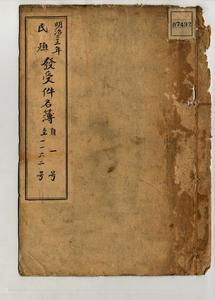 明治三三年
民延 發受件名簿
自一号
至一一二二号
87492